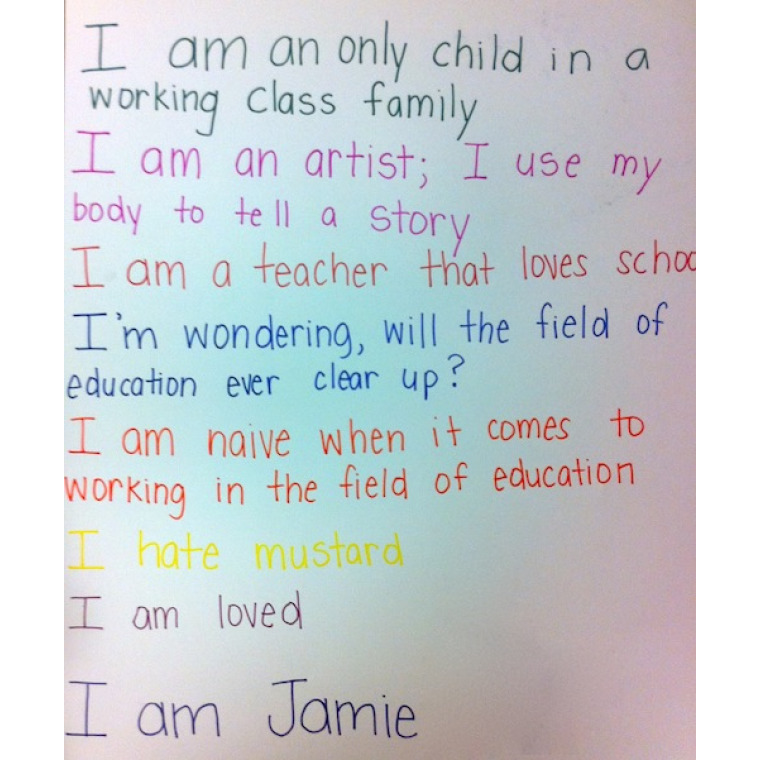 I am an only child in a
working class family
I am an artist; I use my
body to tell a story
I am a teacher that loves schoo
I'm wondering, will the field of
education ever clear up?
I am naive when it comes to
working in the field of education
I hate mustard
I am loved
I am Jamie